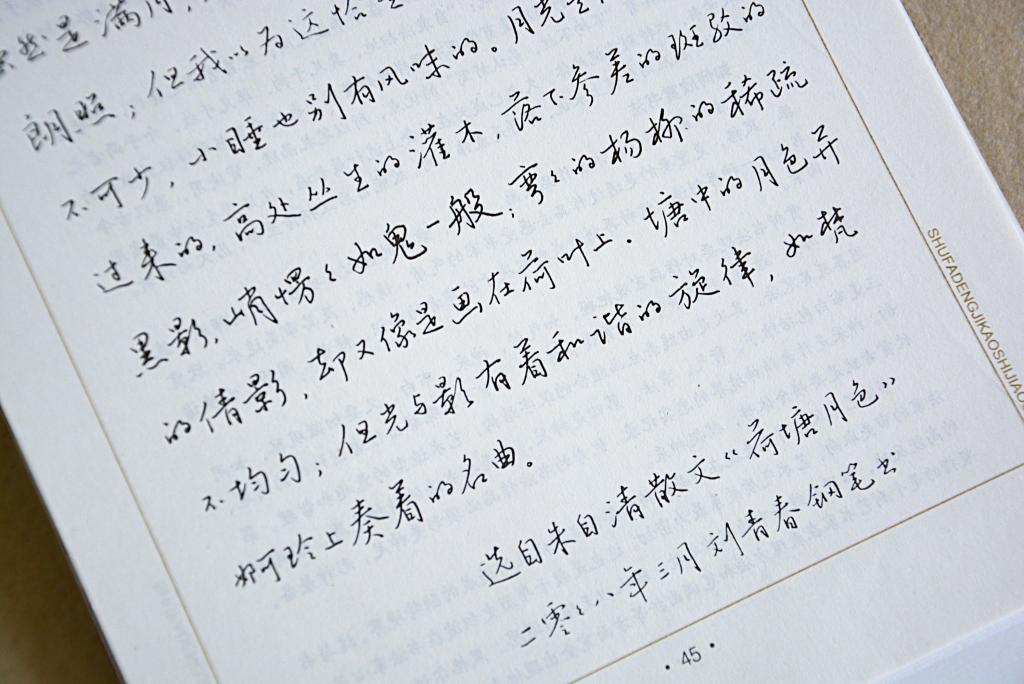 虽然是满月，
朗照；但我以为这恰是
不可少，小睡也别有风味的。月光是
过来的，高处丛生的灌木，落下参差的斑驳的
黑影，峭愣々如鬼一般；弯々的杨柳的稀疏
的倩影，却又像是画在荷叶上．塘中的月色并
不均匀；但光与影有着和谐的旋律，如梵
婀玲上奏着的名曲。
选自朱自清散文《荷塘月色》
二零々八年三月刘青春钢笔书
SHUFADENGJIKAOSHIJIAO
·45·